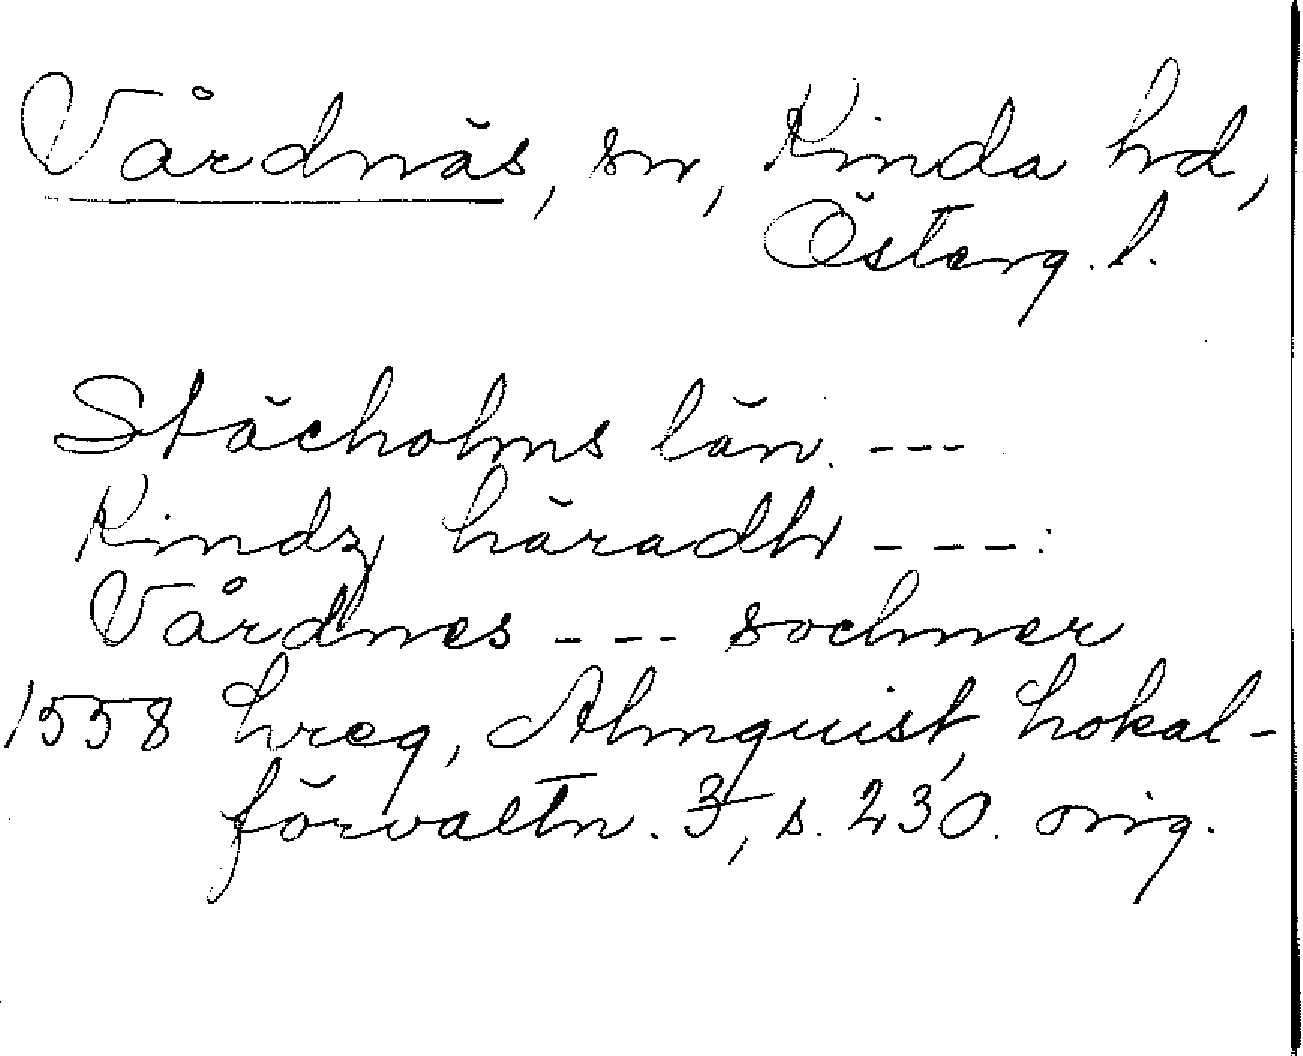 Vårdnäs, sn, Kinda hd,
Österg. l.
Stächolms län. ---
Kindz häradh ---:
Vårdnes --- sochner
1558 hreg, Almquist, Lokal-
förvaltn. 3, s. 230. orig.